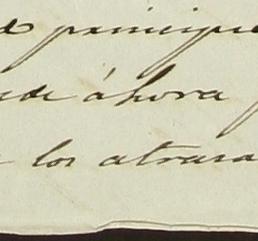 principi
áhora
los atrasa